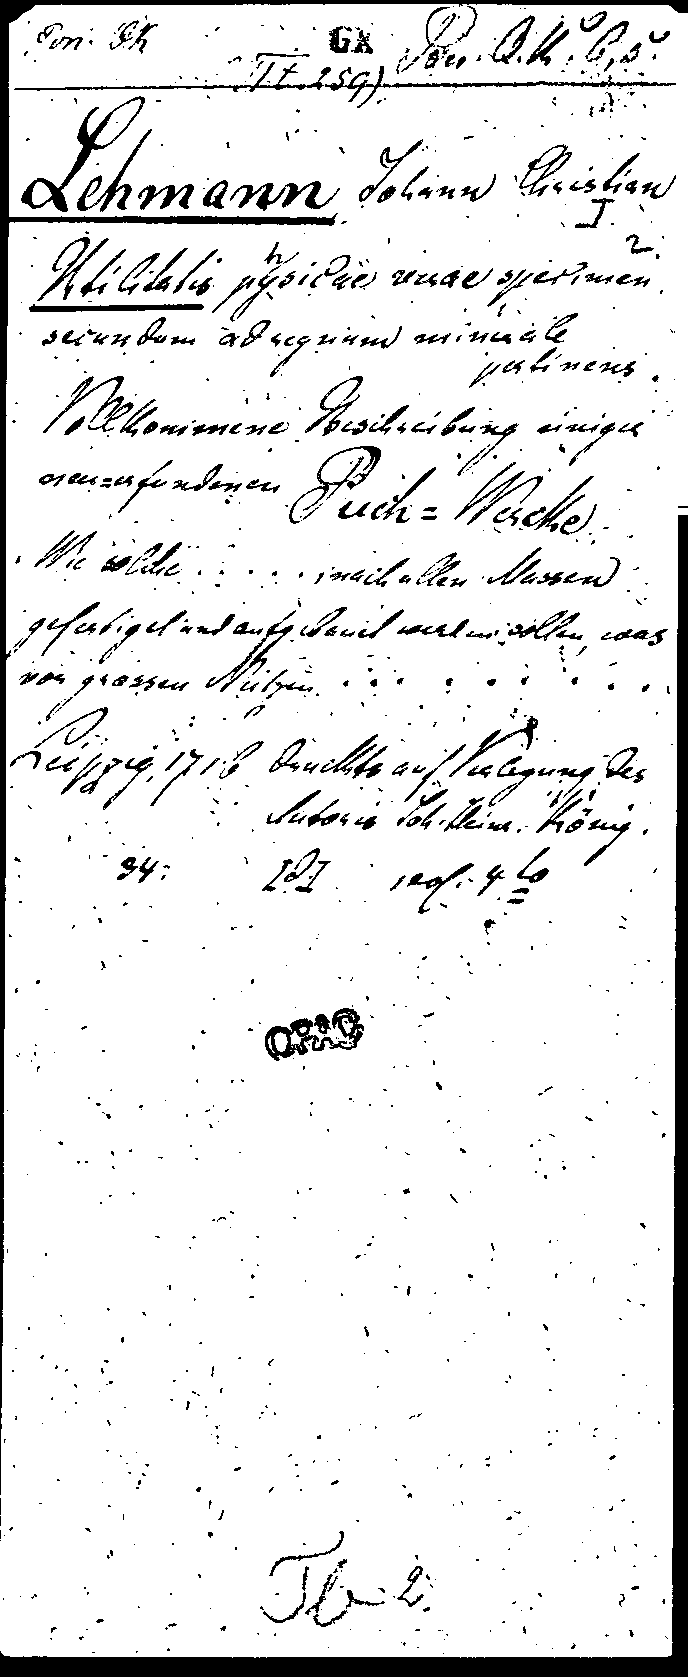 Pon. QK GX Pon. Q.K. 6,5.
Tf. 259)
Lehmann Johann Christian
I
2
Utilitatis physicae verae specimen
secundum ad regnum minerale
pertinens.
Vollkommene Beschreibung einiger
neu=erfundenen Puch=Wercke
Wie solche . . . . . nach allen Massen
gefertiget und aufgebauet werden sollen, was
vor grossen Nutzen . . . . . . . . .
Leipzig, 1716 druckts auf Verlegung des
Autoris Joh. Heinr. König.
34. 4to
ORIG
Tb 2.